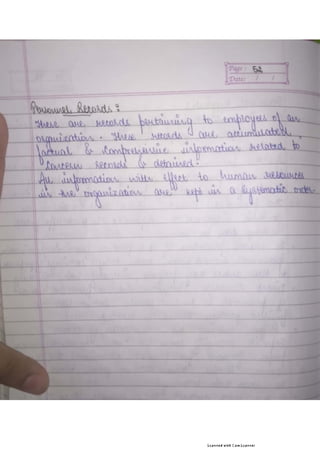 Page: 52
Date: / /
Personnel Records:
These are records pertaining to employees of an
organization. These records are accumulated,
factual & comprehensive information related to
concern records & detained.
All information with effect to human resources
in the organization are kept in a systematic order.
Scanned with CamScanner